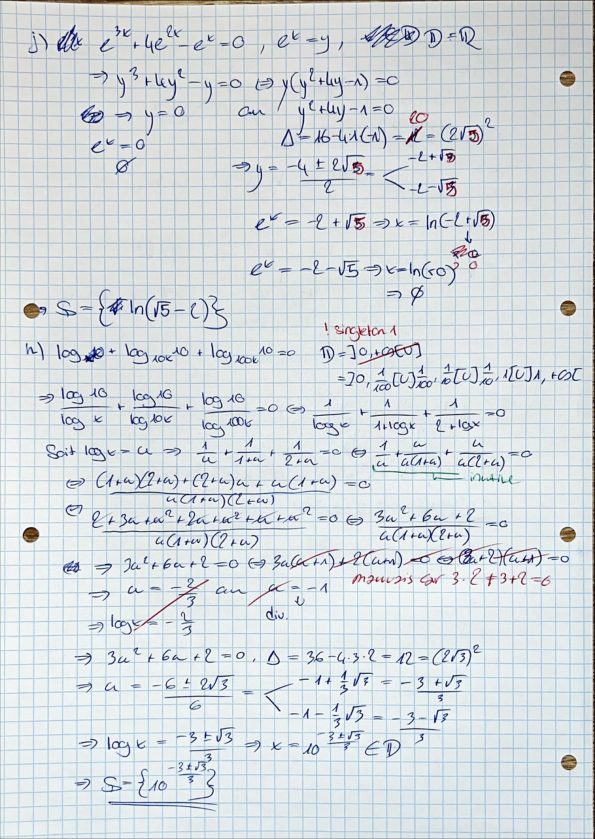 j) e^{3x} + 4e^{2x} - e^x = 0 , e^x = y , D = R
⇒ y³ + 4y² - y = 0 ⇔ y(y² + 4y - 1) = 0
⇒ y = 0 ou y² + 4y - 1 = 0
e^x = 0 Δ = 16 - 4·1·(-1) = 20 = (2√5)²
∅ ⇒ y = (-4 ± 2√5)/2 = -2 + √5
-2 - √5
e^x = -2 + √5 ⇒ x = ln(-2 + √5)
e^x = -2 - √5 ⇒ x = ln(<0)
⇒ ∅
⇒ S = {ln(√5 - 2)}
! singleton 1
k) log_x 10 + log_{10x} 10 + log_{100x} 10 = 0 D = ]0, +∞[∪]
= ]0, 1/100[∪]1/100, 1/10[∪]1/10, 1[∪]1, +∞[
⇒ log10/logx + log10/log10x + log10/log100x = 0 ⇔ 1/logx + 1/(1+logx) + 1/(2+logx) = 0
Soit log x = u ⇒ 1/u + 1/(1+u) + 1/(2+u) = 0 ⇔ 1/u + u/(u(1+u)) + u/(u(2+u)) = 0
inutile
⇔ ((1+u)(2+u) + (2+u)u + u(1+u))/(u(1+u)(2+u)) = 0
⇔ (2 + 3u + u² + 2u + u² + u + u²)/(u(1+u)(2+u)) = 0 ⇔ (3u² + 6u + 2)/(u(1+u)(2+u)) = 0
⇒ 3u² + 6u + 2 = 0 ⇔ 3u(u+1) + 2(u+1) = 0 ⇔ (3u+2)(u+1) = 0
mauvais car 3·2 ≠ 3+2 = 6
⇒ u = -2/3 ou u = -1
⇒ log x = -2/3 div.
⇒ 3u² + 6u + 2 = 0, Δ = 36 - 4·3·2 = 12 = (2√3)²
⇒ u = (-6 ± 2√3)/6 = -1 + 1/3 √3 = (-3 + √3)/3
-1 - 1/3 √3 = (-3 - √3)/3
⇒ log x = (-3 ± √3)/3 ⇒ x = 10^{(-3 ± √3)/3} ∈ D
⇒ S = {10^{(-3 ± √3)/3}}